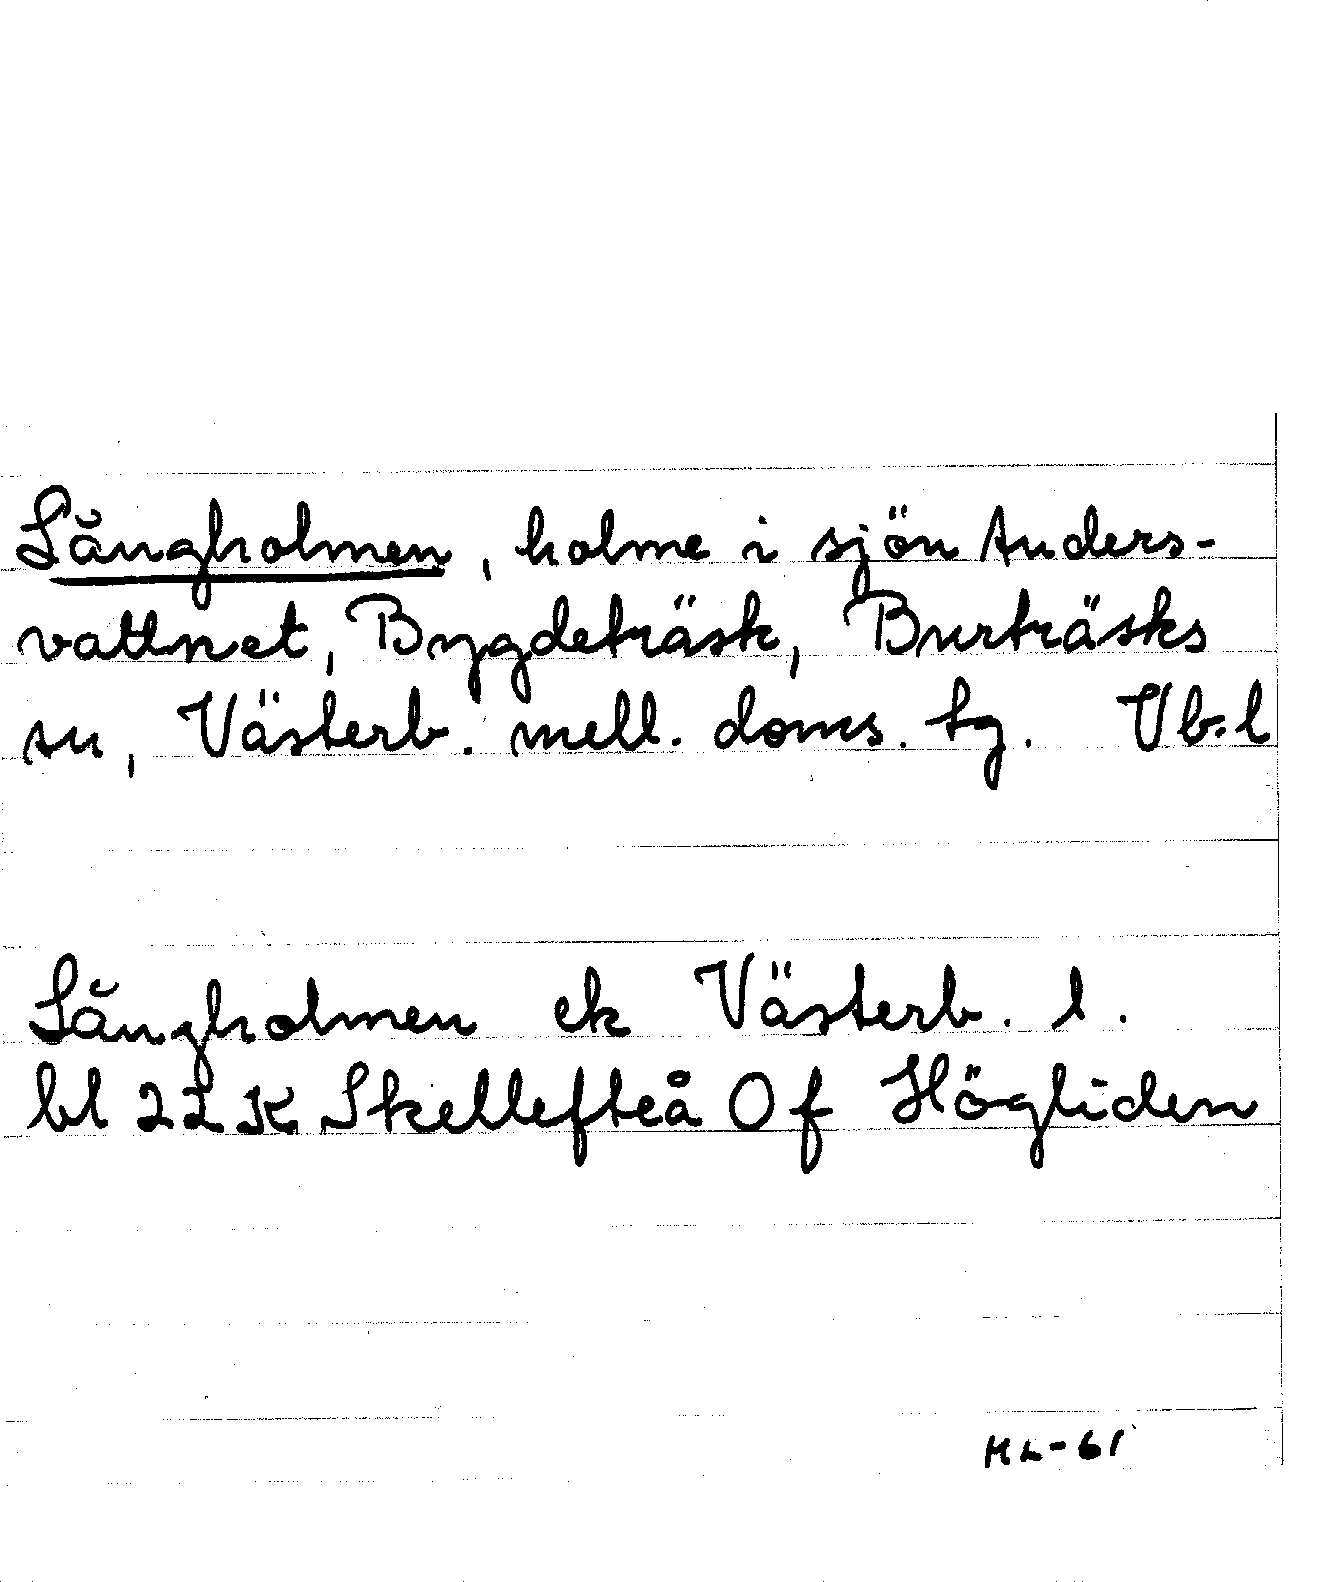 Långholmen, holme i sjön Anders-
vattnet, Bygdeträsk, Burträsks
sn, Västerb. mell. doms. tg. Vb. l
Långholmen ek Västerb. l.
bl 22 K Skellefteå O f Högliden
HL-61